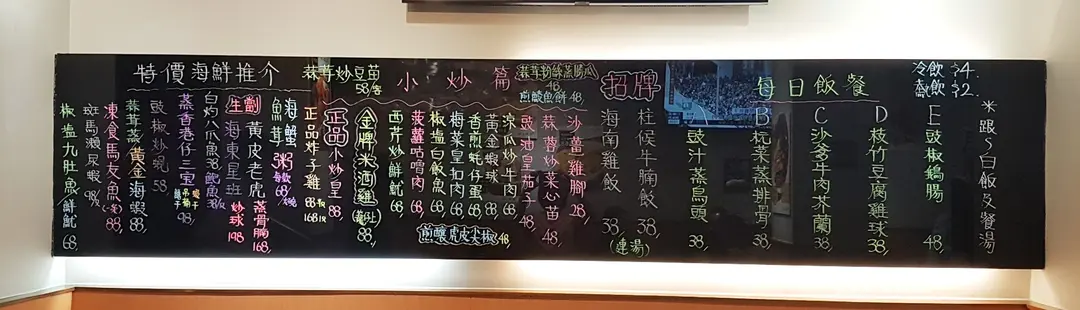 特價海鮮推介
椒鹽九肚魚/鮮魷 68
斑馬瀨尿蝦 98/
凍食馬友魚 88/
蒜茸蒸黃金海蝦 88/
豉椒炒蜆 58
蒸香港仔三宝
白灼八爪魚 38/
鮑魚
生劏
海東星班
炒球 198
黃皮老虎
蒸骨腩 168/
海蟹粥
魚茸
蒜茸炒豆苗
58/
正品炸子雞
88
168
正品
小炒皇 88
金牌米酒雞
88/
小炒篇
西芹炒鮮魷 68/
菠蘿咕嚕肉 68/
椒鹽白飯魚 68/
梅菜皇扣肉 68/
香煎蚝仔蛋 68/
黃金蝦球 68/
涼瓜炒牛肉 68/
煎釀虎皮尖椒 48/
蒜茸粉絲蒸勝瓜
48
煎釀魚餅 48/
豉油皇茄子 48/
蒜蓉炒菜心苗 48/
沙薑雞腳 28/
招牌
海南雞飯 38/
柱候牛腩飯 38/
(連湯)
每日飯餐
豉汁蒸烏頭 38/
B 梳菜蒸排骨 38/
C 沙爹牛肉芥蘭 38/
D 枝竹豆腐雞球 38/
E 豉椒鵝腸 48/
冷飲 $4.
熱飲 $2.
*跟:白飯及餐湯